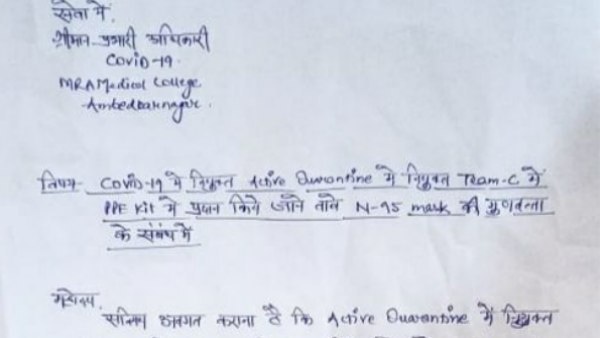 सेवा में,
श्रीमान प्रभारी अधिकारी
Covid-19
MRA Medical College
Ambedkarnagar.
विषय- Covid-19 मे नियुक्त Active Quarantine मे नियुक्त Team-C में
PPE Kit मे प्रदान किये जाने वाले N-95 mask की गुणवत्ता
के संबंध में
महोदय,
अवगत कराना है कि Active Quarantine में नियुक्त